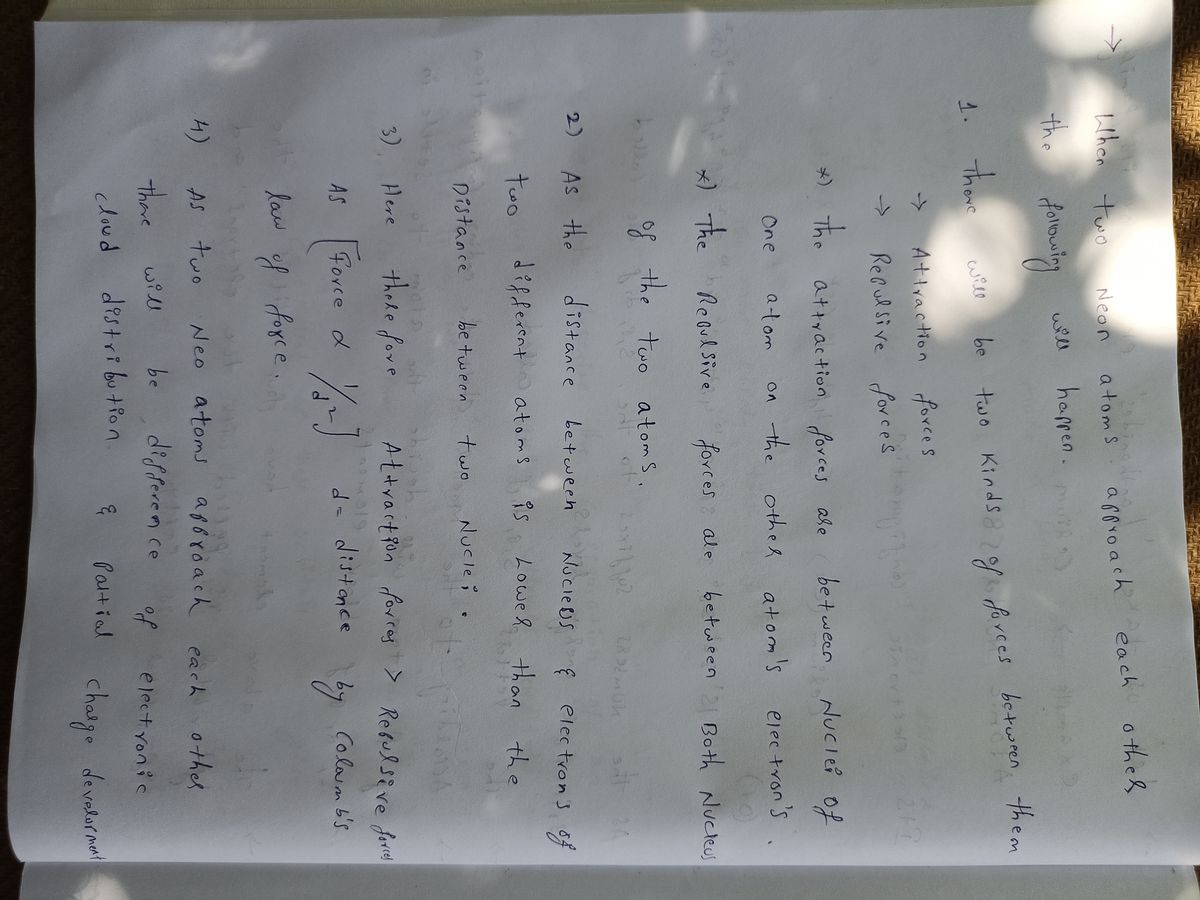 → When two Neon atoms approach each other
the following will happen.
1. there will be two Kinds of forces between them
→ Attraction forces
→ Repulsive forces
*) The attraction forces are between Nuclei of
one atom on the other atom's electron's.
*) the Repulsive forces are between Both Nucleus
of the two atoms.
2) As the distance between Nucleus & electrons of
two different atoms is Lower than the
Distance between two Nuclei.
3) Here therefore Attraction forces > Repulsive forces
As [Force α 1/d²] d = distance by Coloumb's
law of force.
4) As two Neo atoms approach each other
there will be difference of electronic
cloud distribution & partial charge development